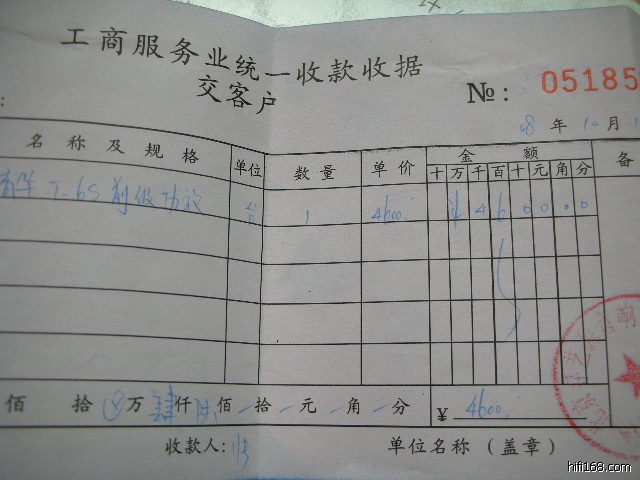 工商服务业统一收款收据
交客户
№: 05185
08 年 10 月 1
名称及规格 单位 数量 单价 金额 备
十 万 千 百 十 元 角 分
T-6S 前级功放 台 1 4600. ¥ 4 6 0 0 0 0
佰 拾 万 肆 仟 陆 佰 拾 元 角 分 ¥ 4600.
收款人: 单位名称（盖章）
hifi168.com